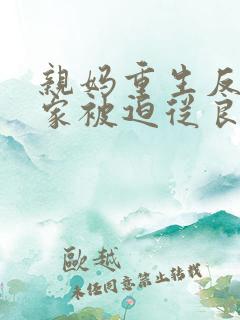 親媽重生反
家被迫從良
歐越
未經同意禁止轉載